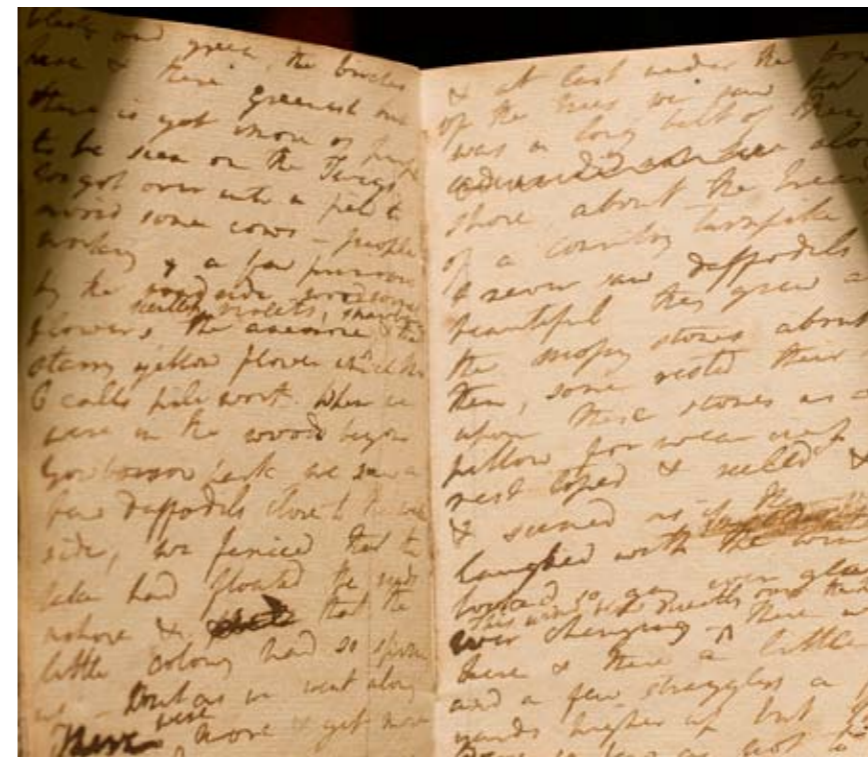 black and green, the birches
here & there greenish but
there is yet more of purple
to be seen on the Twigs.
We got over into a field to
avoid some cows – people
working, a few primroses
by the roadside, woodsorrel
scentless violets, strawberries
flowers, the anemone, & the
starry yellow flower which Mrs
C calls pile wort. When we
were in the woods beyond
Gowbarrow park we saw a
few daffodils close to the water
side, we fancied that the
lake had floated the seeds
ashore & that the
little colony had so sprung
up – But as we went along
there were more & yet more
& at last under the
of the trees we saw that
was a long belt of them
along
shore, about the breadth
of a country turnpike
I never saw daffodils
beautiful they grew
the mossy stones about
them, some rested their
upon these stones as
pillow for weariness &
rest tossed & reeled &
& seemed as if they
laughed with the wind
looked so gay ever
This wind blew directly over the
ever changing – There
here & there a little
and a few stragglers a
yards higher up but